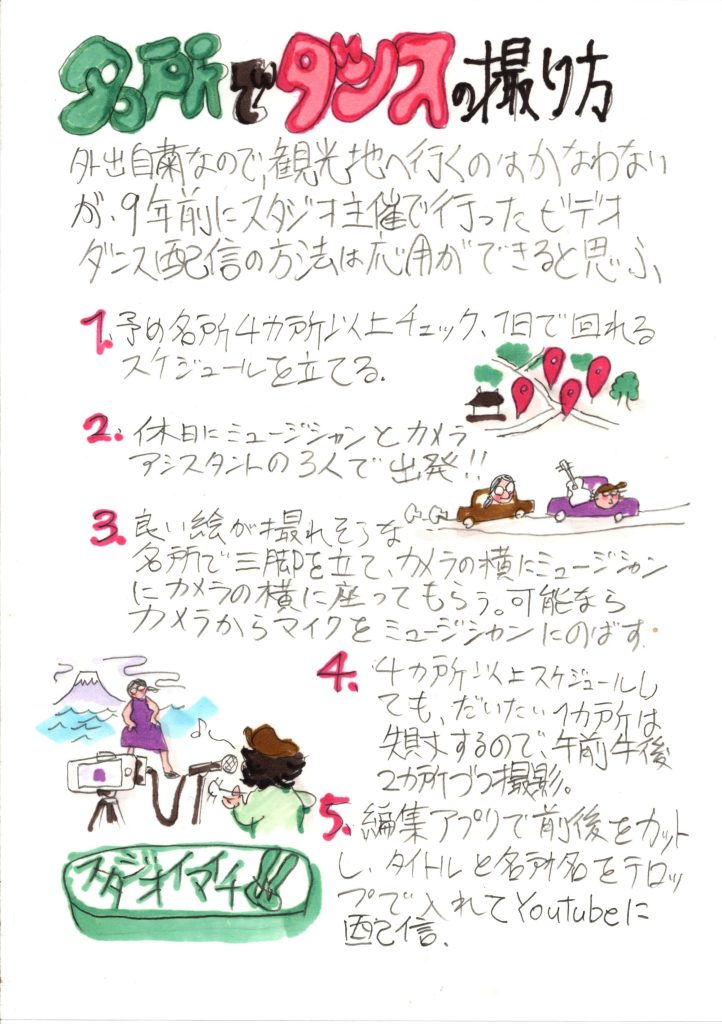 名所でダンスの撮り方
外出自粛なので、観光地へ行くのはかなわない
が、9年前にスタジオ主催で行ったビデオ
ダンス配信の方法は応用ができると思ふ、
1.予め名所4カ所以上チェック、1日で回れる
スケジュールを立てる.
2.休日にミュージシャンとカメラ
アシスタントの3人で出発!!
3.良い絵が撮れそうな
名所で三脚を立て、カメラの横にミュージシャン
にカメラの横に座ってもらう。可能なら
カメラからマイクをミュージシャンにのばす.
4.4カ所以上スケジュールし
ても、だいたい1カ所は
失敗するので、午前午後
2カ所づつ撮影。
5.編集アプリで前後をカット
し、タイトルと名所名をテロッ
プで入れてYoutubeに
配信.
スタジオイマイチ!!